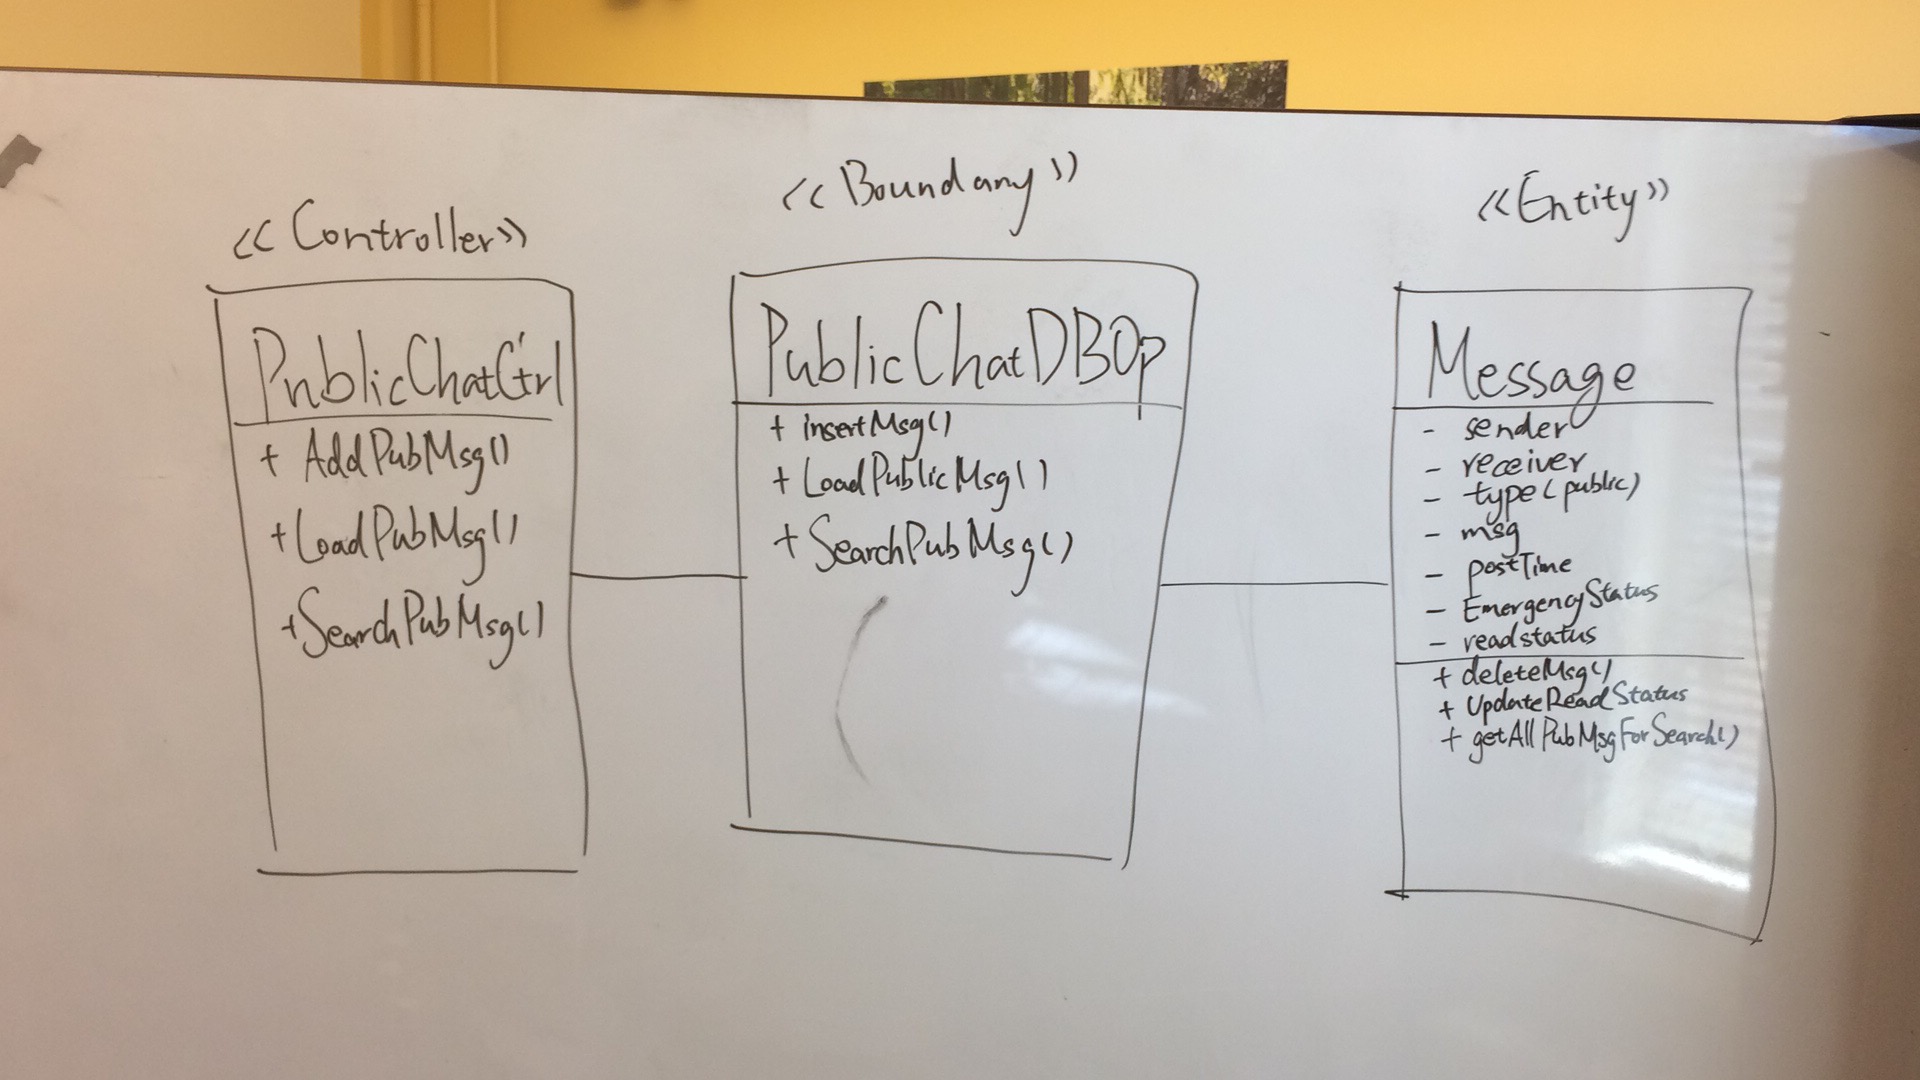 <<Controller>>
PublicChatCtrl
+ AddPubMsg()
+ LoadPubMsg()
+ SearchPubMsg()
<<Boundary>>
PublicChatDBOp
+ insertMsg()
+ LoadPublicMsg()
+ SearchPubMsg()
<<Entity>>
Message
- sender
- receiver
- type(public)
- msg
- postTime
- EmergencyStatus
- readstatus
+ deleteMsg()
+ UpdateReadStatus
+ getAllPubMsgForSearch()